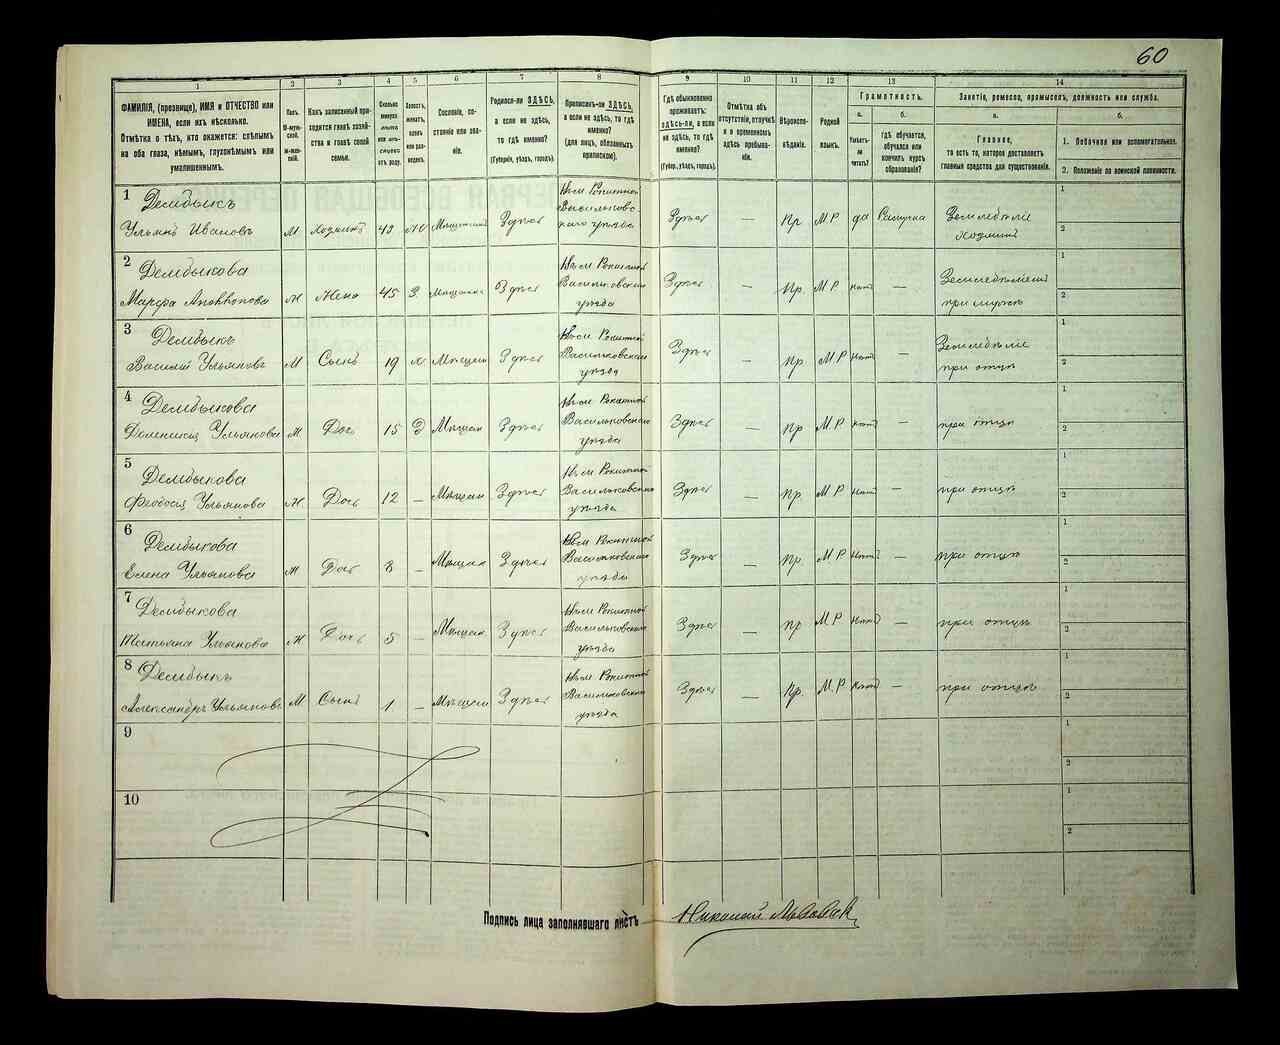 60
1
2
3
4
5
6
7
8
9
10
11
12
13
14
ФАМИЛІЯ, (прозвище), ИМЯ и ОТЧЕСТВО или
ИМЕНА, если ихъ нѣсколько.
Отмѣтка о тѣхъ, кто окажется: слѣпымъ
на оба глаза, нѣмымъ, глухонѣмымъ или
умалишеннымъ.
Полъ.
М-муж-
ской.
Ж-жен-
скій.
Какъ записанный при-
ходится главѣ хозяй-
ства и главѣ своей
семьи.
Сколько
минуло
лѣтъ
или мѣ-
сяцевъ
отъ роду.
Холостъ,
женатъ,
вдовъ
или раз-
веденъ.
Сословіе, со-
стояніе или зва-
ніе.
Родился-ли ЗДѢСЬ,
а если не здѣсь,
то гдѣ именно?
(Губернія, уѣздъ, городъ).
Приписанъ-ли ЗДѢСЬ,
а если не здѣсь, то гдѣ
именно?
(для лицъ, обязанныхъ
припискою).
Гдѣ обыкновенно
проживаетъ:
здѣсь-ли, а если
не здѣсь, то гдѣ
именно?
(Губерн., уѣздъ, городъ).
Отмѣтка объ
отсутствіи, отлучкѣ
и о временномъ
здѣсь пребыва-
ніи.
Вѣроиспо-
вѣданіе.
Родной
языкъ.
Грамотность.
а.
б.
Умѣетъ-
ли
читать?
гдѣ обучается,
обучался или
кончилъ курсъ
образованія?
Занятіе, ремесло, промыселъ, должность или служба.
а.
б.
Главное,
то есть то, которое доставляетъ
главныя средства для существованія.
1. Побочное или вспомогательное.
2. Положеніе по воинской повинности.
1 Дембыкъ
Ульянъ Ивановъ М Хозяинъ 49 Здѣсь
Васильковс-
каго уѣзда
Здѣсь — Пр М Р да
Земледѣліе
хозяинъ
1
2
2 Дембыкова
Марфа Ж Жена 45 З Здѣсь
Васильковскаго
уѣзда
Здѣсь — Пр. М Р нѣтъ —
при мужѣ
1
2
3 Дембыкъ
Василій Ульяновъ М Сынъ 19 Х Мѣщан Здѣсь
Васильковскаго
уѣзда
Здѣсь — Пр М Р нѣтъ —
Земледѣліе
при отцѣ
1
2
4 Дембыкова
Ульянова Доч 15 Мѣщан Здѣсь
Васильковскаго
уѣзда
Здѣсь — Пр М Р нѣтъ —
при отцѣ
1
2
5 Дембыкова
Феодосія Ульянова Ж Доч 12 — Мѣщан Здѣсь
Васильковскаго
уѣзда
Здѣсь — Пр М Р нѣтъ —
при отцѣ
1
2
6 Дембыкова
Елена Ульянова Ж Доч 8 — Мѣщан Здѣсь
Васильковскаго
уѣзда
Здѣсь — Пр М Р нѣтъ —
при отцѣ
1
2
7 Дембыкова
Татьяна Ульянова Ж Дочь 5 — Мѣщан Здѣсь
Васильковскаго
уѣзда
Здѣсь — Пр М Р нѣтъ —
при отцѣ
1
2
8 Дембыкъ
Александръ Ульяновъ М Сынъ 1 — Мѣщан Здѣсь
Васильковскаго
уѣзда
Здѣсь — Пр. М Р нѣтъ —
при отцѣ
1
2
9
1
2
10
1
2
Подпись лица заполнявшаго листъ Николай